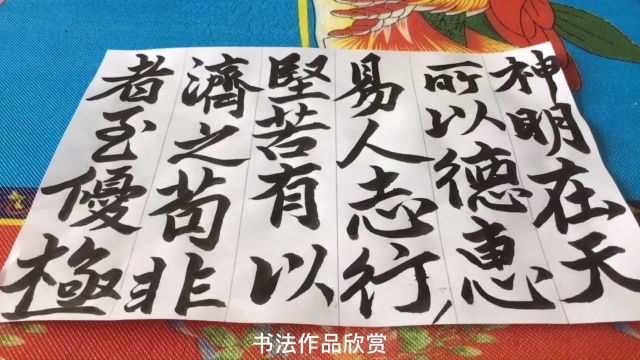 神明在天
所以德惠
易人志行
堅苦有以
濟之苟非
者至優極
书法作品欣赏